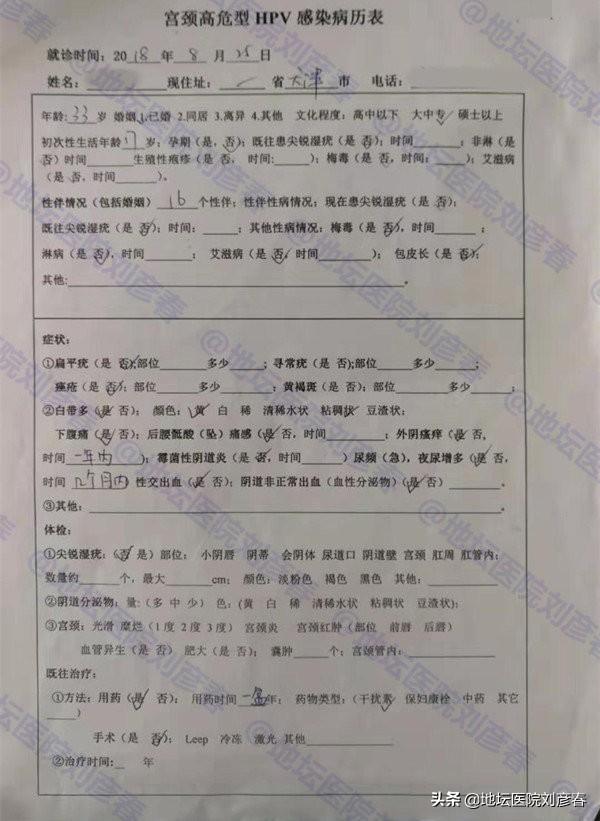 宫颈高危型 HPV 感染病历表
就诊时间：2018 年 8 月 25 日
姓名： 现住址： 省 天津 市 电话：
年龄:33 岁 婚姻 1.已婚 2.同居 3.离异 4.其他 文化程度：高中以下 大中专 硕士以上
初次性生活年龄 岁；孕期（是，否）；既往患尖锐湿疣（是 否）；时间 ；非淋（是
否）时间 生殖性疱疹（是否， 时间： ）；梅毒（是 否，时间： ）；艾滋病
（是 否，时间 ）。
性伴情况（包括婚姻） 16 个性伴；性伴性病情况：现在患尖锐湿疣（是 否）；
既往尖锐湿疣（是 否）；时间： ；其他性病情况：梅毒（是 否），时间 ；
淋病（是 否），时间 ； 艾滋病（是 否，时间 ）； 包皮长（是 否）；
其他: 。
症状：
①扁平疣（是 否）;部位 多少 ；寻常疣（是 否）;部位 多少 ；
痤疮（是 否）；部位 多少 ；黄褐斑（是 否）；部位 多少 ；
②白带多（是 否）； 颜色： 黄 白 稀 清稀水状 粘稠状 豆渣状；
下腹痛（是 否）；后腰骶酸（坠）痛感（是 否，时间 ）；外阴瘙痒（是 否，
时间 一年内 ）；霉菌性阴道炎（是 否，时间 ）尿频（急），夜尿增多（是 否，
时间 几个月内 性交出血（是 否）；阴道非正常出血（血性分泌物）（是 否） 。
③其他： 。
体检：
①尖锐湿疣：（否 是）部位： 小阴唇 阴蒂 会阴体 尿道口 阴道壁 宫颈 肛周 肛管内；
数量约 个，最大 cm； 颜色：淡粉色 褐色 黑色 其他： ；
②阴道分泌物：量:（多 中 少） 色:（黄 白 稀 清稀水状 粘稠状 豆渣状）；
③宫颈：光滑 糜烂（1 度 2 度 3 度） 宫颈炎 宫颈红肿（部位 前唇 后唇）
血管异生（是 否） 肥大（是 否）； 囊肿 个；宫颈管内：
既往治疗：
①方法：用药（是 否）； 用药时间 年； 药物类型：（干扰素 保妇康栓 中药 其它
）
手术（是 否）； Leep 冷冻 激光 其他
②治疗时间： 年
@地坛医院刘彦春
头条 @地坛医院刘彦春